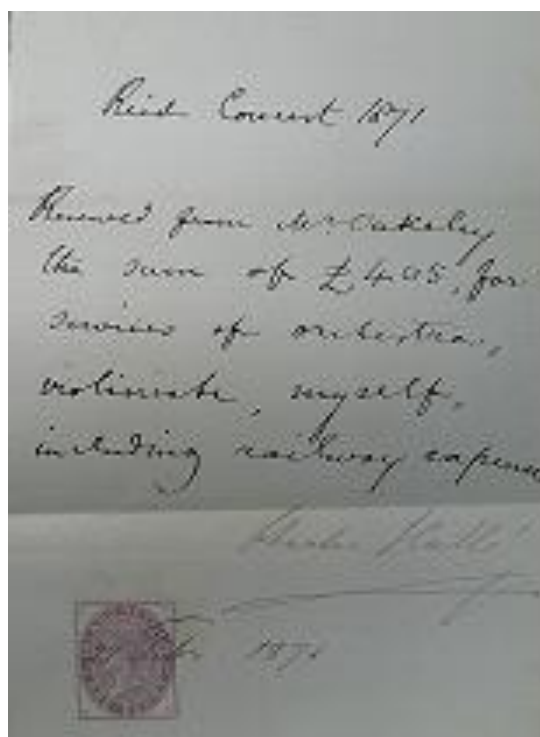 Reid Concert 1871
Received from Mr Oakeley
the sum of £405, for
services of orchestra,
violiniste, myself,
including railway expenses
Charles Hallé
1871